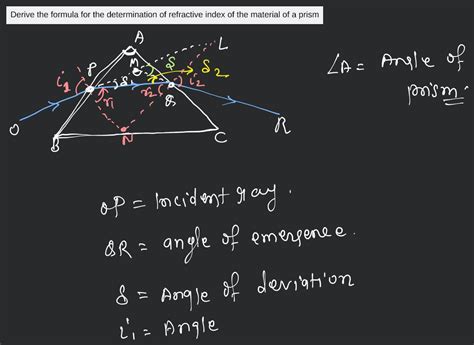 Derive the formula for the determination of refractive index of the material of a prism
A
L
M
δ
P
i1
δ1
δ2
r1
r2
i2
Q
O
N
R
B
C
∠A = Angle of
prism.
OP = Incident ray.
QR = angle of emergence.
δ = Angle of deviation
i1 = Angle